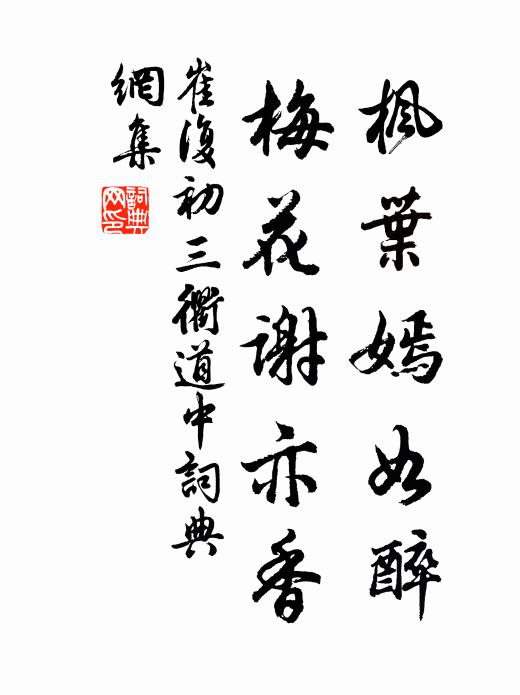 枫葉嫣如醉
梅花谢亦香
崔復初三衢道中詞典
網集
詞典
网印